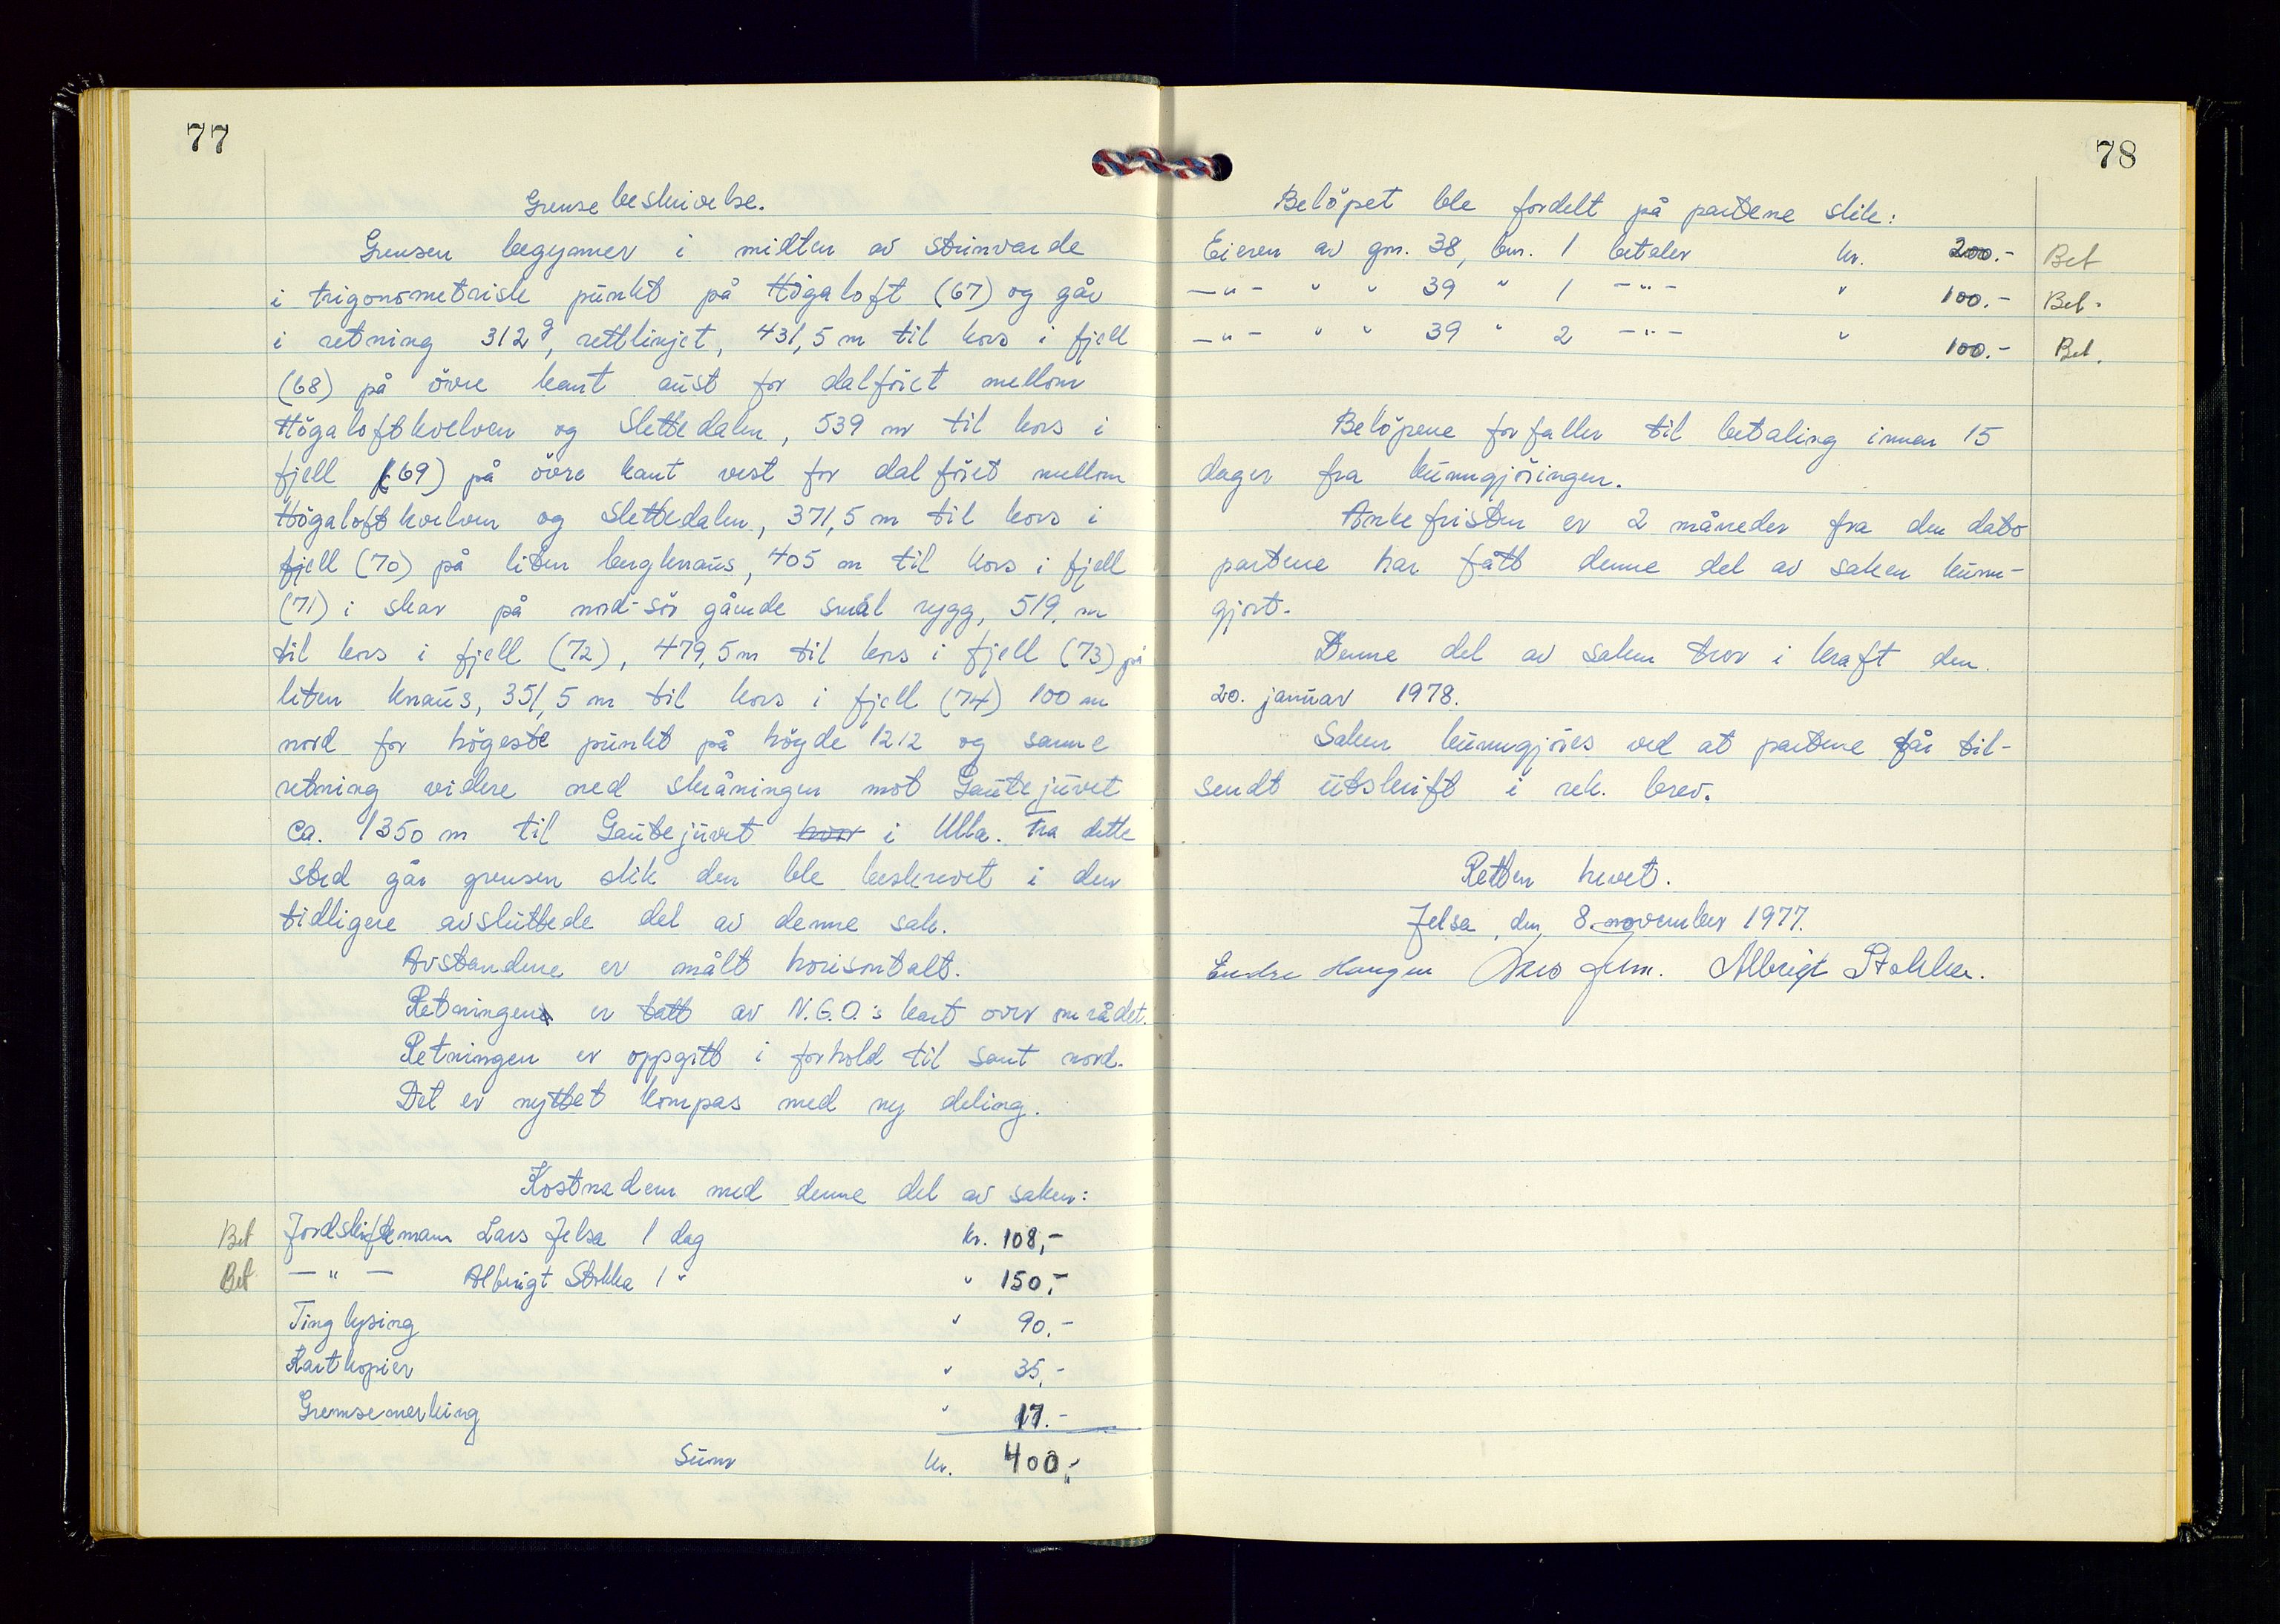 77
Grensebeskrivelse.
Grensen begynner i midten av steinvarde
i trigonometrisk punkt på Högaloft (67) og går
i retning 312 g, rettlinjet, 431,5 m til kors i fjell
(68) på övre kant aust for dalföret mellom
Högaloftkvelven og Slettedalen, 539 m til kors i
fjell (69) på övre kant vest for dalföret mellom
Högaloftkvelven og Slettedalen, 371,5 m til kors i
fjell (70) på liten bergknaus, 405 m til kors i fjell
(71) i skar på nord-sör gående smal rygg, 519, m
til kors i fjell (72), 479,5 m til kors i fjell (73) på
liten knaus, 351,5 m til kors i fjell (74) 100 m
nord for högeste punkt på höyde 1212 og samme
retning videre ned skråningen mot Gautejuvet
ca. 1350 m til Gautejuvet hvor i Ulla. Fra dette
sted går grensen slik den ble beskrevet i den
tidligere avsluttede del av denne sak.
Avstandene er målt horisontalt.
Retningen er tatt av N.G.O.'s kart over området.
Retningen er oppgitt i forhold til sant nord.
Det er nyttet kompas med ny deling.
Kostnadene med denne del av saken:
Bet Jordskiftemann Lars Jelsa 1 dag kr. 108,-
Bet — " — Albrigt Stokka 1 " " 150,-
Tinglysing " 90.-
Kartkopier " 35,-
Grensemerking " 17.-
Sum kr. 400,-
78
Belöpet ble fordelt på partene slik:
Eieren av gnr. 38, bnr. 1 betaler kr. 200.- Bet
— " — " " 39 " 1 — " — " 100.- Bet.
— " — " " 39 " 2 — " — " 100.- Bet.
Belöpene forfaller til betaling innen 15
dager fra kunngjöringen.
Ankefristen er 2 måneder fra den dato
partene har fått denne del av saken kunn-
gjort.
Denne del av saken trer i kraft den
20. januar 1978.
Saken kunngjöres ved at partene får til-
sendt utskrift i rek. brev.
Retten hevet.
Jelsa, den 8. november 1977.
Endre Haugen Lars Jelsa. Albrigt Stokka.